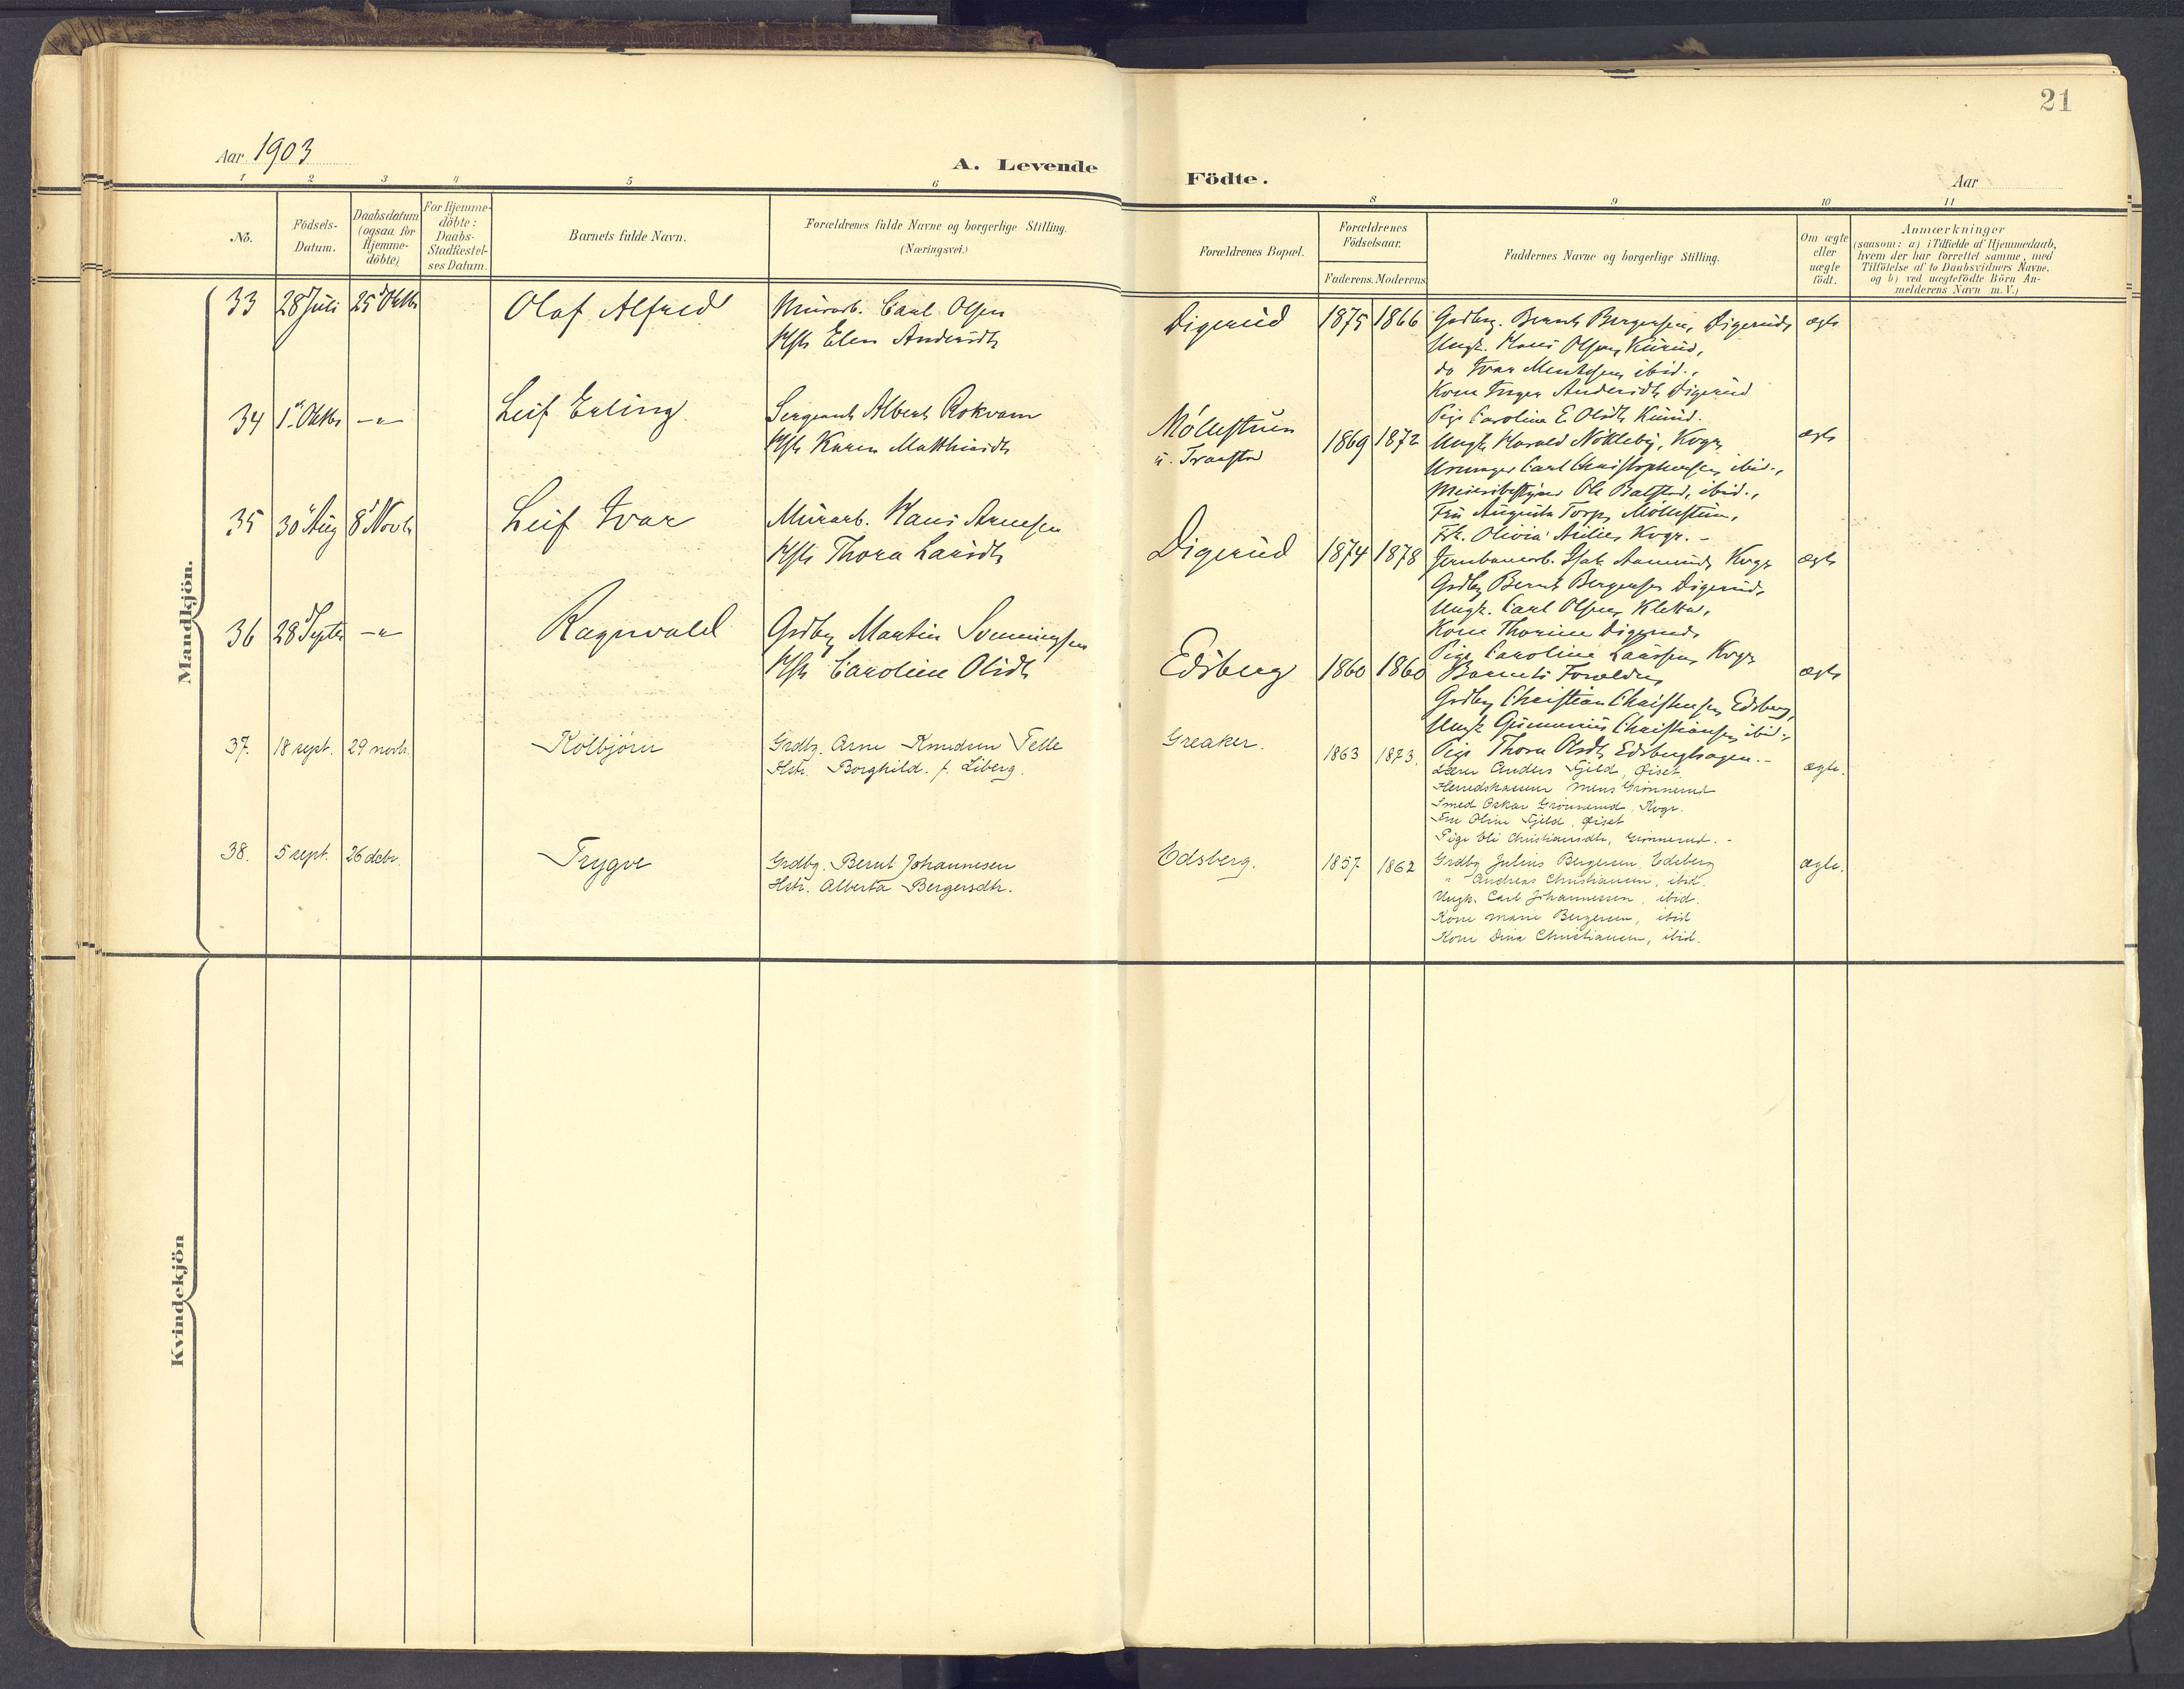 21
Aar 1903
A. Levende
Födte.
Aar
1 2 3 4 5 6 8 9 10 11
No.
Födsels-
Datum.
Daabsdatum
(ogsaa for
Hjemme-
döbte)
For Hjemme-
döbte:
Daabs-
Stadfæstel-
ses Datum.
Barnets fulde Navn.
Forældrenes fulde Navne og borgerlige Stilling.
(Næringsvei.)
Forældrenes Bopæl.
Forældrenes
Födselsaar.
Faderens. Moderens
Faddernes Navne og borgerlige Stilling.
Om ægte
eller
uægte
födt.
Anmærkninger
(saasom: a) i Tilfælde af Hjemmedaab,
hvem der har forrettet samme, med
Tilföielse af to Daabsvidners Navne.
og b) ved uægtefödte Börn An-
melderens Navn m. V.)
Mandkjön.
33 28 Juli 25 Oktb
Olaf Alfred
Murarb. Carl Olsen
Hst. Elen Andersdt.
Digerud
1875 1866
Grdbg. Bernt Bergersen, Digerud,
Ungk. Hans Olsen, Kurud,
do Ivar Mentzen, ibid.,
Kone Inger Andersdt. Digerud
Pige Caroline E. Olsdt. Kurud.
ægte
34 1 Oktbr -"-
Leif Erling
Sergeant Albert Rokvam
Hst. Karen Matthiasdt.
Möllestuen
u. Traastad
1869 1872
Ungk. Harald Nökleby, Kvgr.
Carl Christophersen, ibid.,
Meieribestyrer Ole Balstad, ibid.,
Fru Augusta Torp, Möllestuen,
Frk. Olivia Kvgr. -
ægte
35 30 Aug 8 Novb
Leif Ivar
Murarb. Hans Arnesen
Hst. Thora Larsdt.
Digerud
1874 1878
Jernbanearb. Isak Aamund, Kvgr.
Grdbg. Bernt Bergersen Digerud,
Ungk. Carl Olsen, Kletta,
Kone Thorine Digerud,
Pige Caroline Larssen, Kvgr.
ægte
36 28 Septbr -"-
Ragnvald
Grdbg. Martin Svenningsen
Hst. Caroline Olsdt.
Edsberg
1860 1860
Barnets Forældre,
Grdbg. Christian Christensen, Edsberg,
Ungk. Gunnerius Christiansen, ibid.,
Pige Thora Olsdt. Edsberghagen. -
ægte
37. 18 sept. 29 novb.
Kolbjörn
Grdbg. Arne Knudsen Telle
Hstr. Borghild f. Liberg.
Greaker.
1863 1873.
Lærer Anders Fjeld, Öiset
Herredskasserer Mens Grönnerud
Smed Oskar Grönnerud, Kvgr.
Fru Oline Fjeld, Öiset
Pige Eli Christiansdtr, Grönnerud. -
ægte.
38. 5 sept. 26 debr.
Trygve
Grdbg. Bernt Johannesen
Hstr. Alberta Bergersdtr.
Edsberg.
1857 1862
Grdbg Julius Bergersen, Edsberg
" Andreas Christiansen, ibid.
Ungk. Carl Johannessen, ibid.
Kone Marie Bergersen, ibid
Kone Dina Christiansen, ibid.
ægte.
Kvindekjön